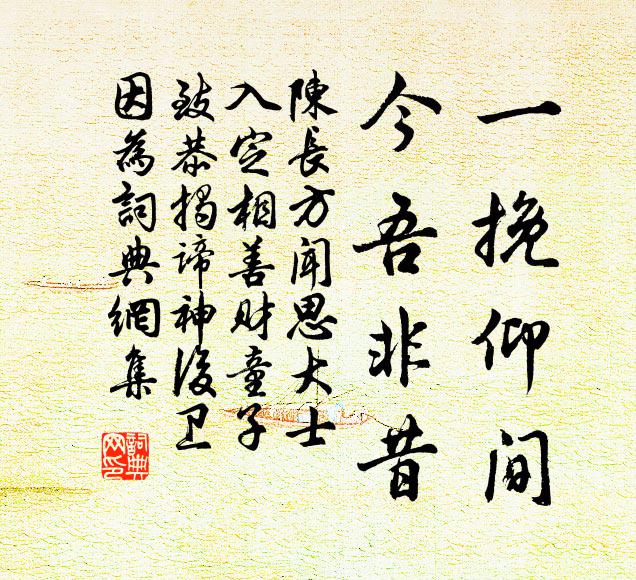 一挽仰间
今吾非昔
陳長方闻思大士
入定相善财童子
致恭揭谛神後卫
因為詞典網集
詞典網印